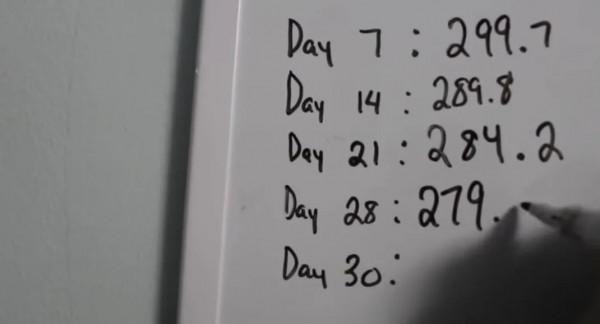 Day 7 : 299.7
Day 14 : 289.8
Day 21 : 284.2
Day 28 : 279.
Day 30 :